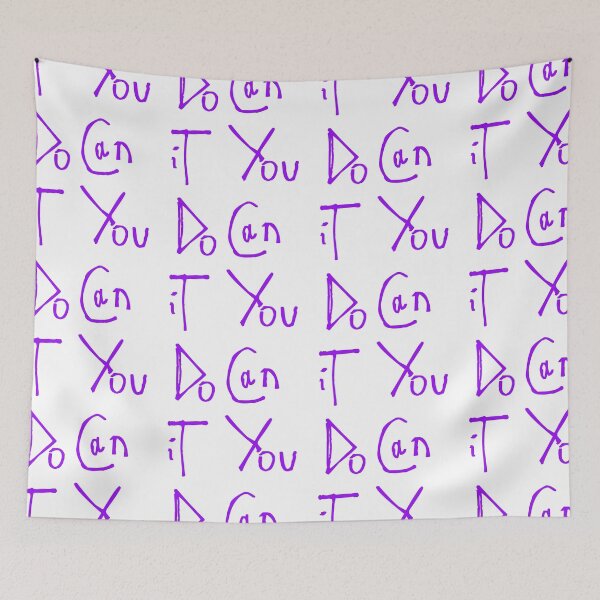 T You Do Can iT You Do Can
Do Can iT You Do Can iT Yo
T You Do Can iT You Do Can
Do Can iT You Do Can iT Yo
T You Do Can iT You Do Can
Do Can iT You Do Can iT Yo
T Y Do Can iT Y Do Can